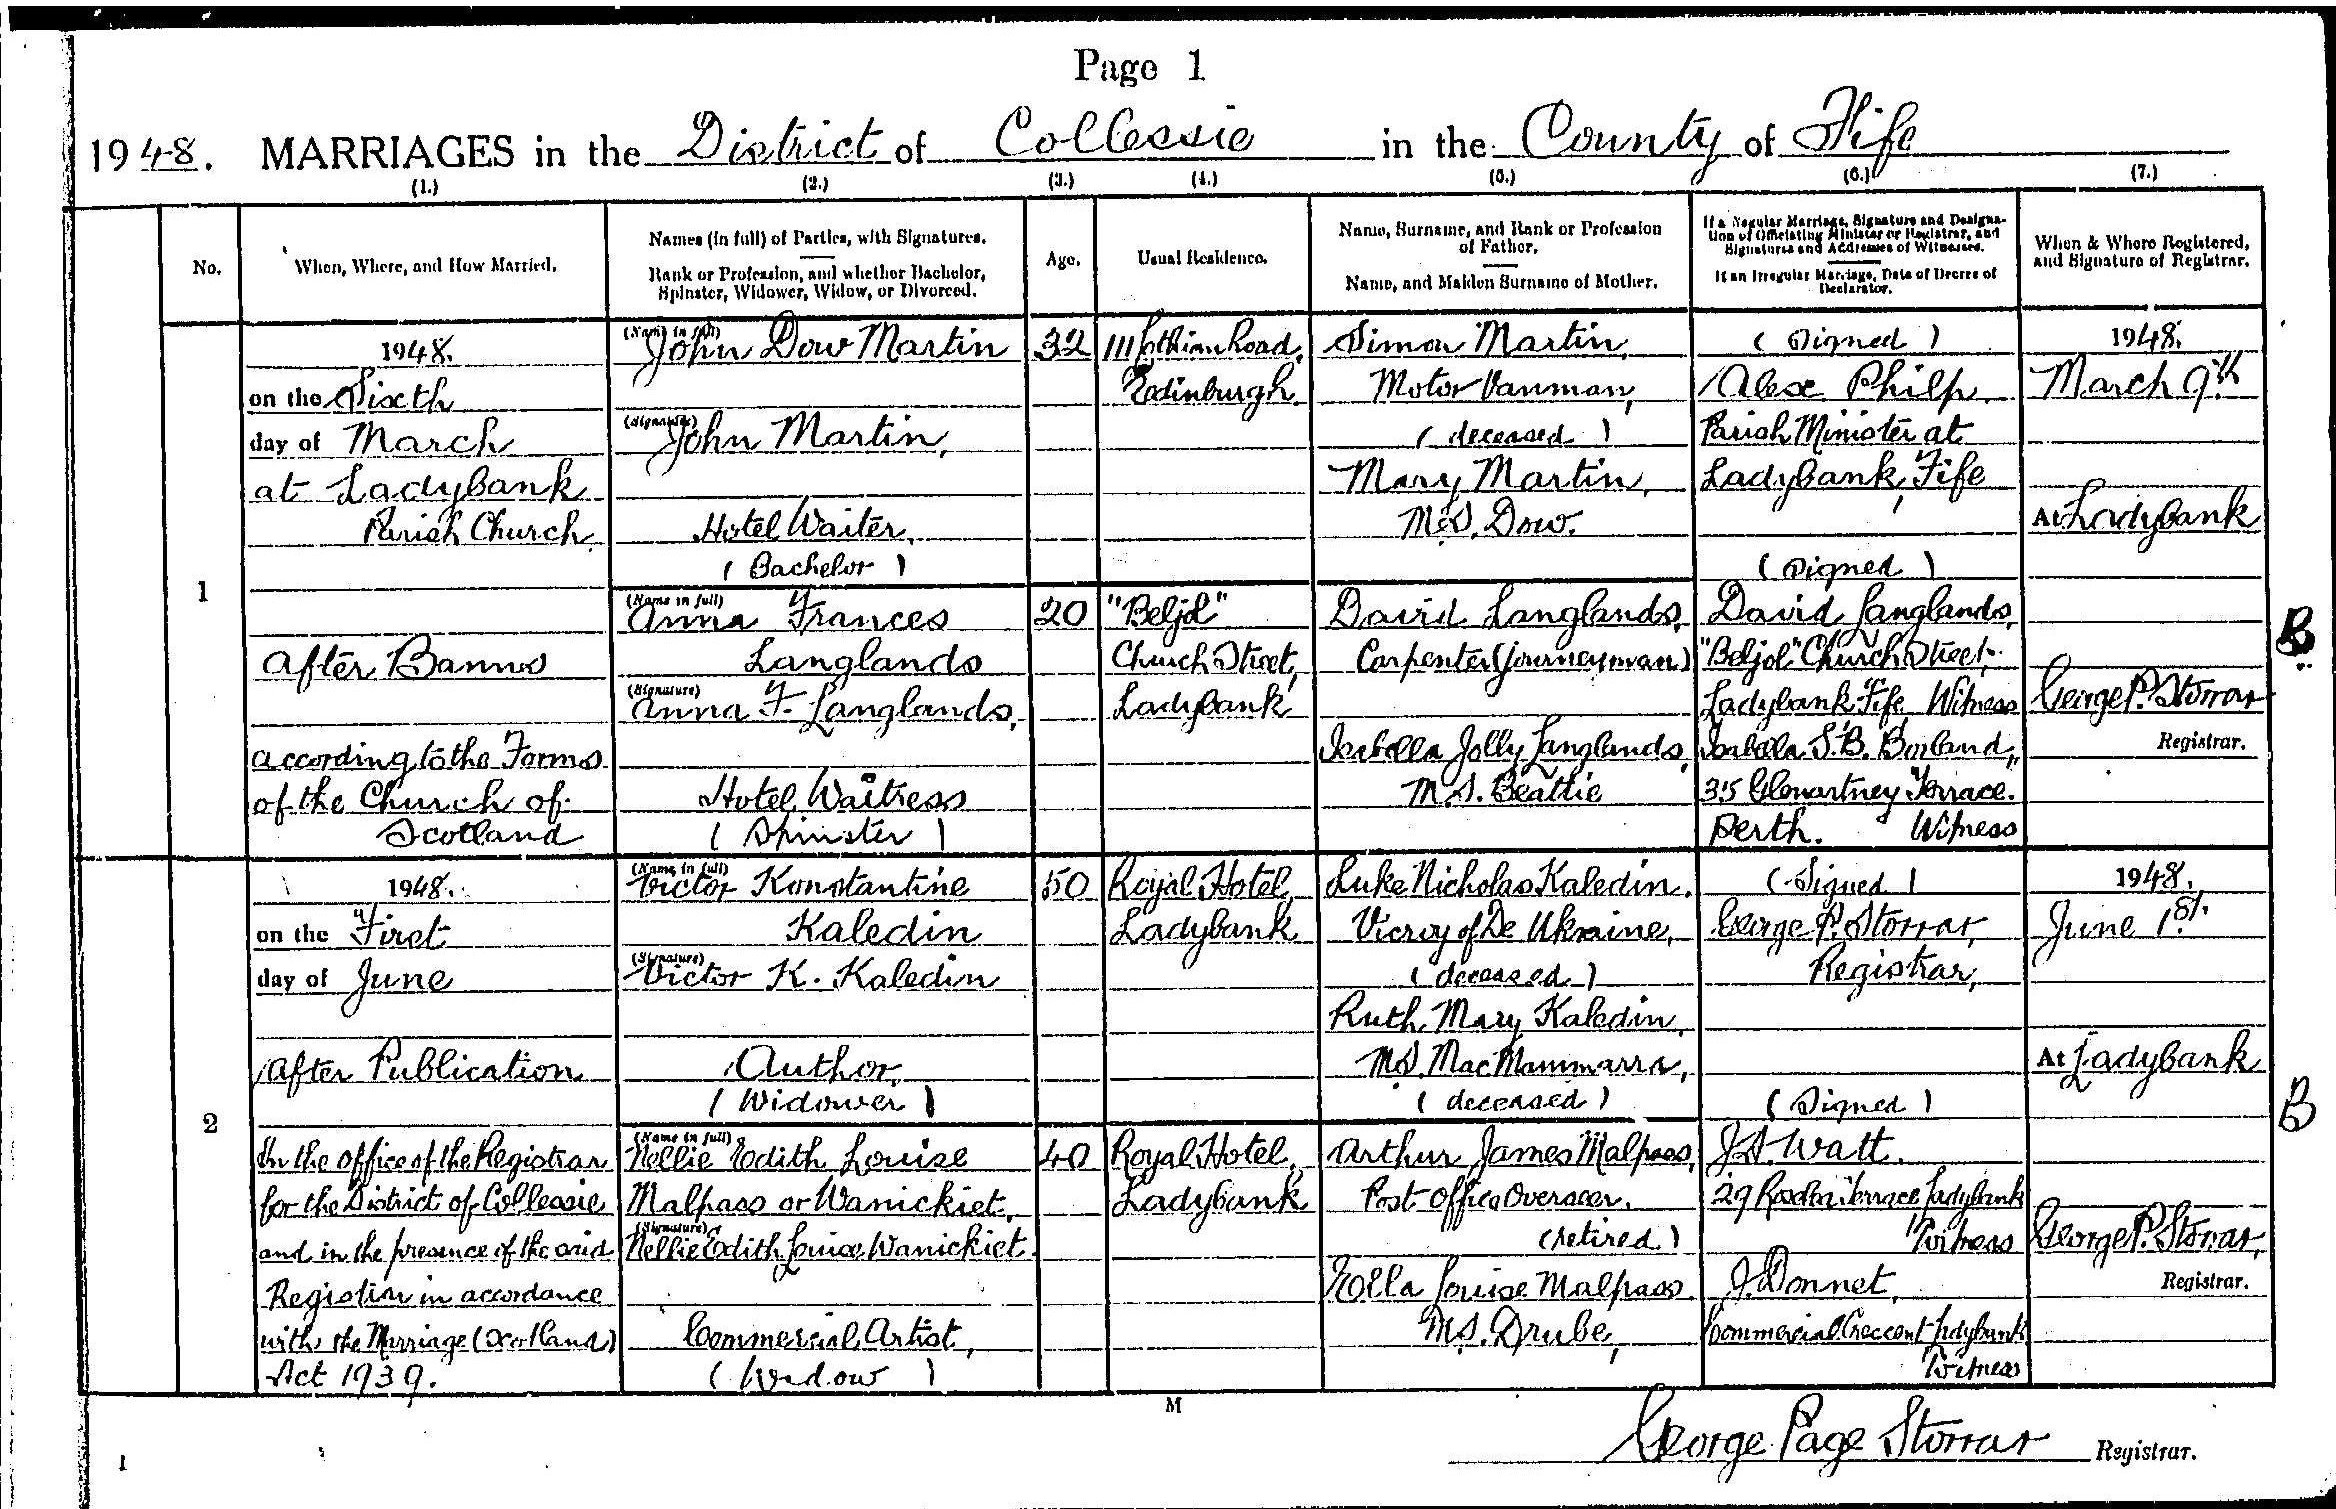 Page 1
1948. MARRIAGES in the District of Collessie in the County of Fife
(1.) (2.) (3.) (4.) (5.) (6.) (7.)
No.
When, Where, and How Married.
Names (in full) of Parties, with Signatures.
Rank or Profession, and whether Bachelor,
Spinster, Widower, Widow, or Divorced.
Age.
Usual Residence.
Name, Surname, and Rank or Profession
of Father.
Name, and Maiden Surname of Mother.
If a Regular Marriage, Signature and Designa-
tion of Officiating Minister or Registrar, and
Signatures and Addresses of Witnesses.
If an Irregular Marriage, Date of Decree of
Declarator.
When & Where Registered,
and Signature of Registrar.
1
1948.
on the Sixth
day of March
at Ladybank
Parish Church.
After Banns
according to the Forms
of the Church of
Scotland
(Name in full)
John Dow Martin
(Signature)
John Martin,
Hotel Waiter,
(Bachelor)
32
111 Lothian Road,
Edinburgh.
Simon Martin,
Motor Vanman,
(deceased)
Mary Martin,
M.S. Dow.
(Name in full)
Anna Frances
Langlands
(Signature)
Anna F. Langlands,
Hotel Waitress
(Spinster)
20
"Beljol"
Church Street,
Ladybank
David Langlands,
Carpenter (Journeyman)
Isabella Jolly Langlands,
M.S. Beattie
(Signed)
Alex Philp.
Parish Minister at
Ladybank, Fife
(Signed)
David Langlands,
"Beljol" Church Street,
Ladybank Fife, Witness
Isabella S. B. Borland,
35 Glenartney Terrace.
Perth. Witness
1948.
March 9th
At Ladybank
George P. Storrar
Registrar.
B
2
1948.
on the First
day of June
After Publication
In the office of the Registrar
for the District of Collessie
and in the presence of the said
Registrar in accordance
with the Marriage (Scotland)
Act 1939.
(Name in full)
Victor Konstantine
Kaledin
(Signature)
Victor K. Kaledin
Author,
(Widower)
50
Royal Hotel,
Ladybank
Luke Nicholas Kaledin.
Viceroy of De Ukraine,
(deceased)
Ruth Mary Kaledin,
M.S. MacMammarra,
(deceased)
(Name in full)
Nellie Edith Louise
Malpass or Wanickiet.
(Signature)
Nellie Edith Louise Wanickiet.
Commercial Artist,
(Widow)
40
Royal Hotel,
Ladybank
Arthur James Malpass,
Post Office Overseer.
(retired)
Ella Louise Malpass
M.S. Drube,
(Signed)
George P. Storrar,
Registrar,
(Signed)
J. A. Watt.
29 Terrace Ladybank
Witness
J. Donnet.
Commercial Crescent Ladybank
Witness
1948.
June 1st.
At Ladybank
George P. Storrar,
Registrar.
B
M
George Page Storrar Registrar.
1